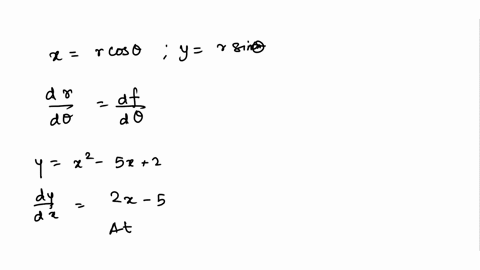 x = r cosθ ; y = r sinθ
dr/dθ = df/dθ
y = x² - 5x + 2
dy/dx = 2x - 5
At